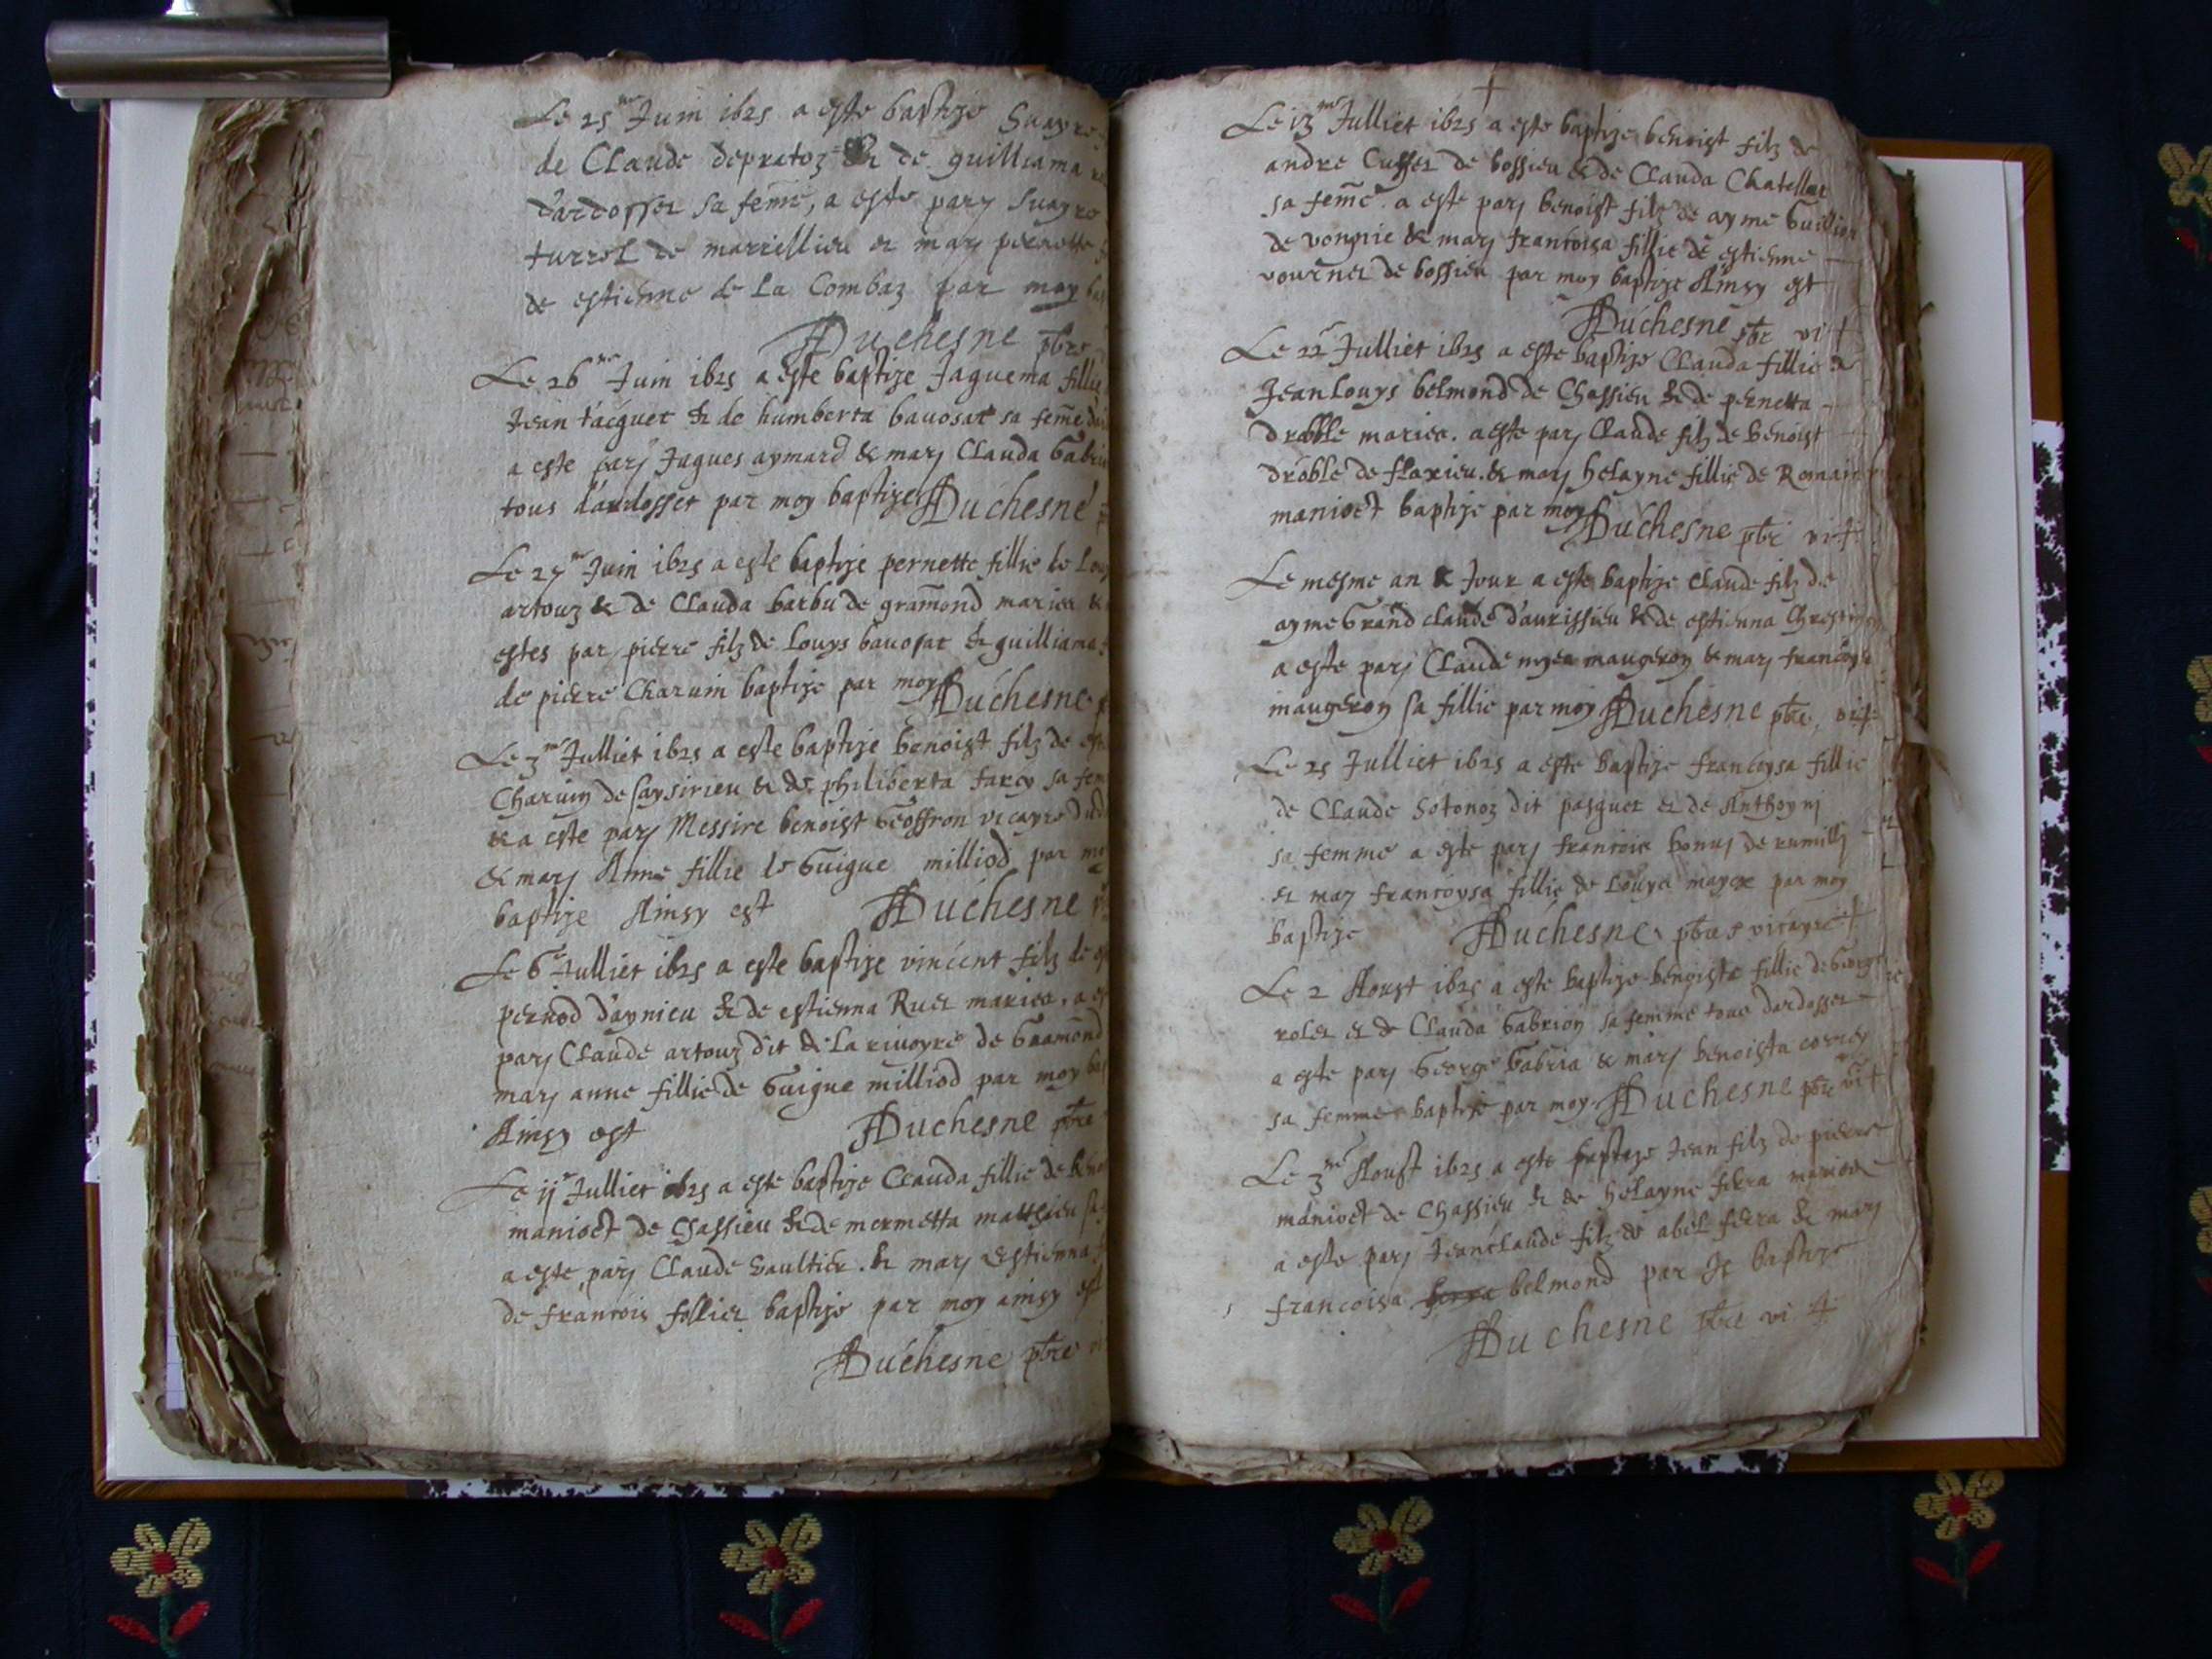 Le 25me Juin 1625 a este baptize Suayre
de Claude depratoz & de guilliama
dardosset sa feme, a este pary Suayre
turrel de marrillieu et mary pernette
de estienne de la Combaz par moy
Duchesne pbre
Le 26me Juin 1625 a este baptize Jaquema fillie
Jean tacquet & de humberta bauosat sa feme
a este parj Jaques aymard & marj Clauda
tous dardosset par moy baptize Duchesne
Le 27me Juin 1625 a este baptize pernette fillie de
artouz & de Clauda barbu de gramond mariez &
estes par pierre filz de Louys bauosat & guilliama
de pierre Charuin baptize par moy Duchesne
Le 3me Julliet 1625 a este baptize benoist filz de
Charuin de saysirieu & de philiberta farcy sa
& a este parj Messire benoist Geoffron vicayre
& marj Anne fillie de Guigue milliod par
baptize Ainsy est Duchesne
Le 6e Julliet 1625 a este baptize vincent filz de
pernod d'aynieu & de estienna Ruet mariez, a
parj Claude artouz dit de La riuoyre de Gramond
marj anne fillie de Guigue milliod par moy
Ainsy est Duchesne pbre
Le ii Julliet 1625 a este baptize Clauda fillie de
manioct de Chassieu & de mermetta matthieu
a este parj Claude Gaultier & marj Estienna
de francois follier baptize par moy ainsy est
Duchesne pbre
Le 13me Julliet 1625 a este baptize benoist filz de
andre Cusset de bossieu & de Clauda Chatellar
sa feme a este parj benoist filz de ayme
de vongnie & marj francoisa fillie de estienne
vournet de bossieu par moy baptize Ainsy est
Duchesne pbre vi
Le 22e Julliet 1625 a este baptize Clauda fillie de
Jean Louys belmond de Chassieu & de pernetta
droble mariez. a este parj Claude filz de Benoist
droble de flaxieu. & marj helayne fillie de Romain
manioct baptize par moy Duchesne pbre vi
Le mesme an & Jour a este baptize Claude filz de
ayme Grand claude d'aurissieu & de estienna
a este parj Claude maugeron & marj francoysa
maugeron sa fillie par moy Duchesne pbre,
Le 25 Julliet 1625 a este baptize francoysa fillie
de Claude Sotonoz dit pasquet et de Anthoynj
sa femme a este parj francois bonuj de rumillj
et marj francoysa fillie de Louys par moy
baptize Duchesne pbre vicayre
Le 2 Aoust 1625 a este baptize benoista fillie de George
rolet et de Clauda Gabrion sa femme tous dardosset
a este parj George Gabria & marj benoista
sa femme baptize par moy. Duchesne pbre vi
Le 3me Aoust 1625 a este baptize Jean filz de pierre
manioct de Chassieu & de helayne ferra mariez
a este parj Jeanclaude filz de abel ferra & marj
francoisa belmond par Je baptize
Duchesne pbre vi